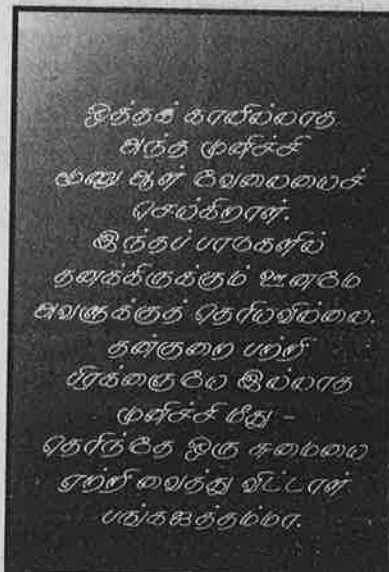 ஒத்தக் காலில்லாத
அந்த முனிச்சி
மூணு ஆள் வேலையைச்
செய்கிறாள்.
இந்தப் பாரங்களில்
தனக்கிருக்கும் ஊனமே
அவளுக்குத் தெரியவில்லை.
தன்குறை பற்றி
பிரக்ஞையே இல்லாத
முனிச்சி மீது –
தெரிந்தே ஒரு சுமையை
ஏற்றி வைத்து விட்டாள்
பங்கஜத்தம்மா.